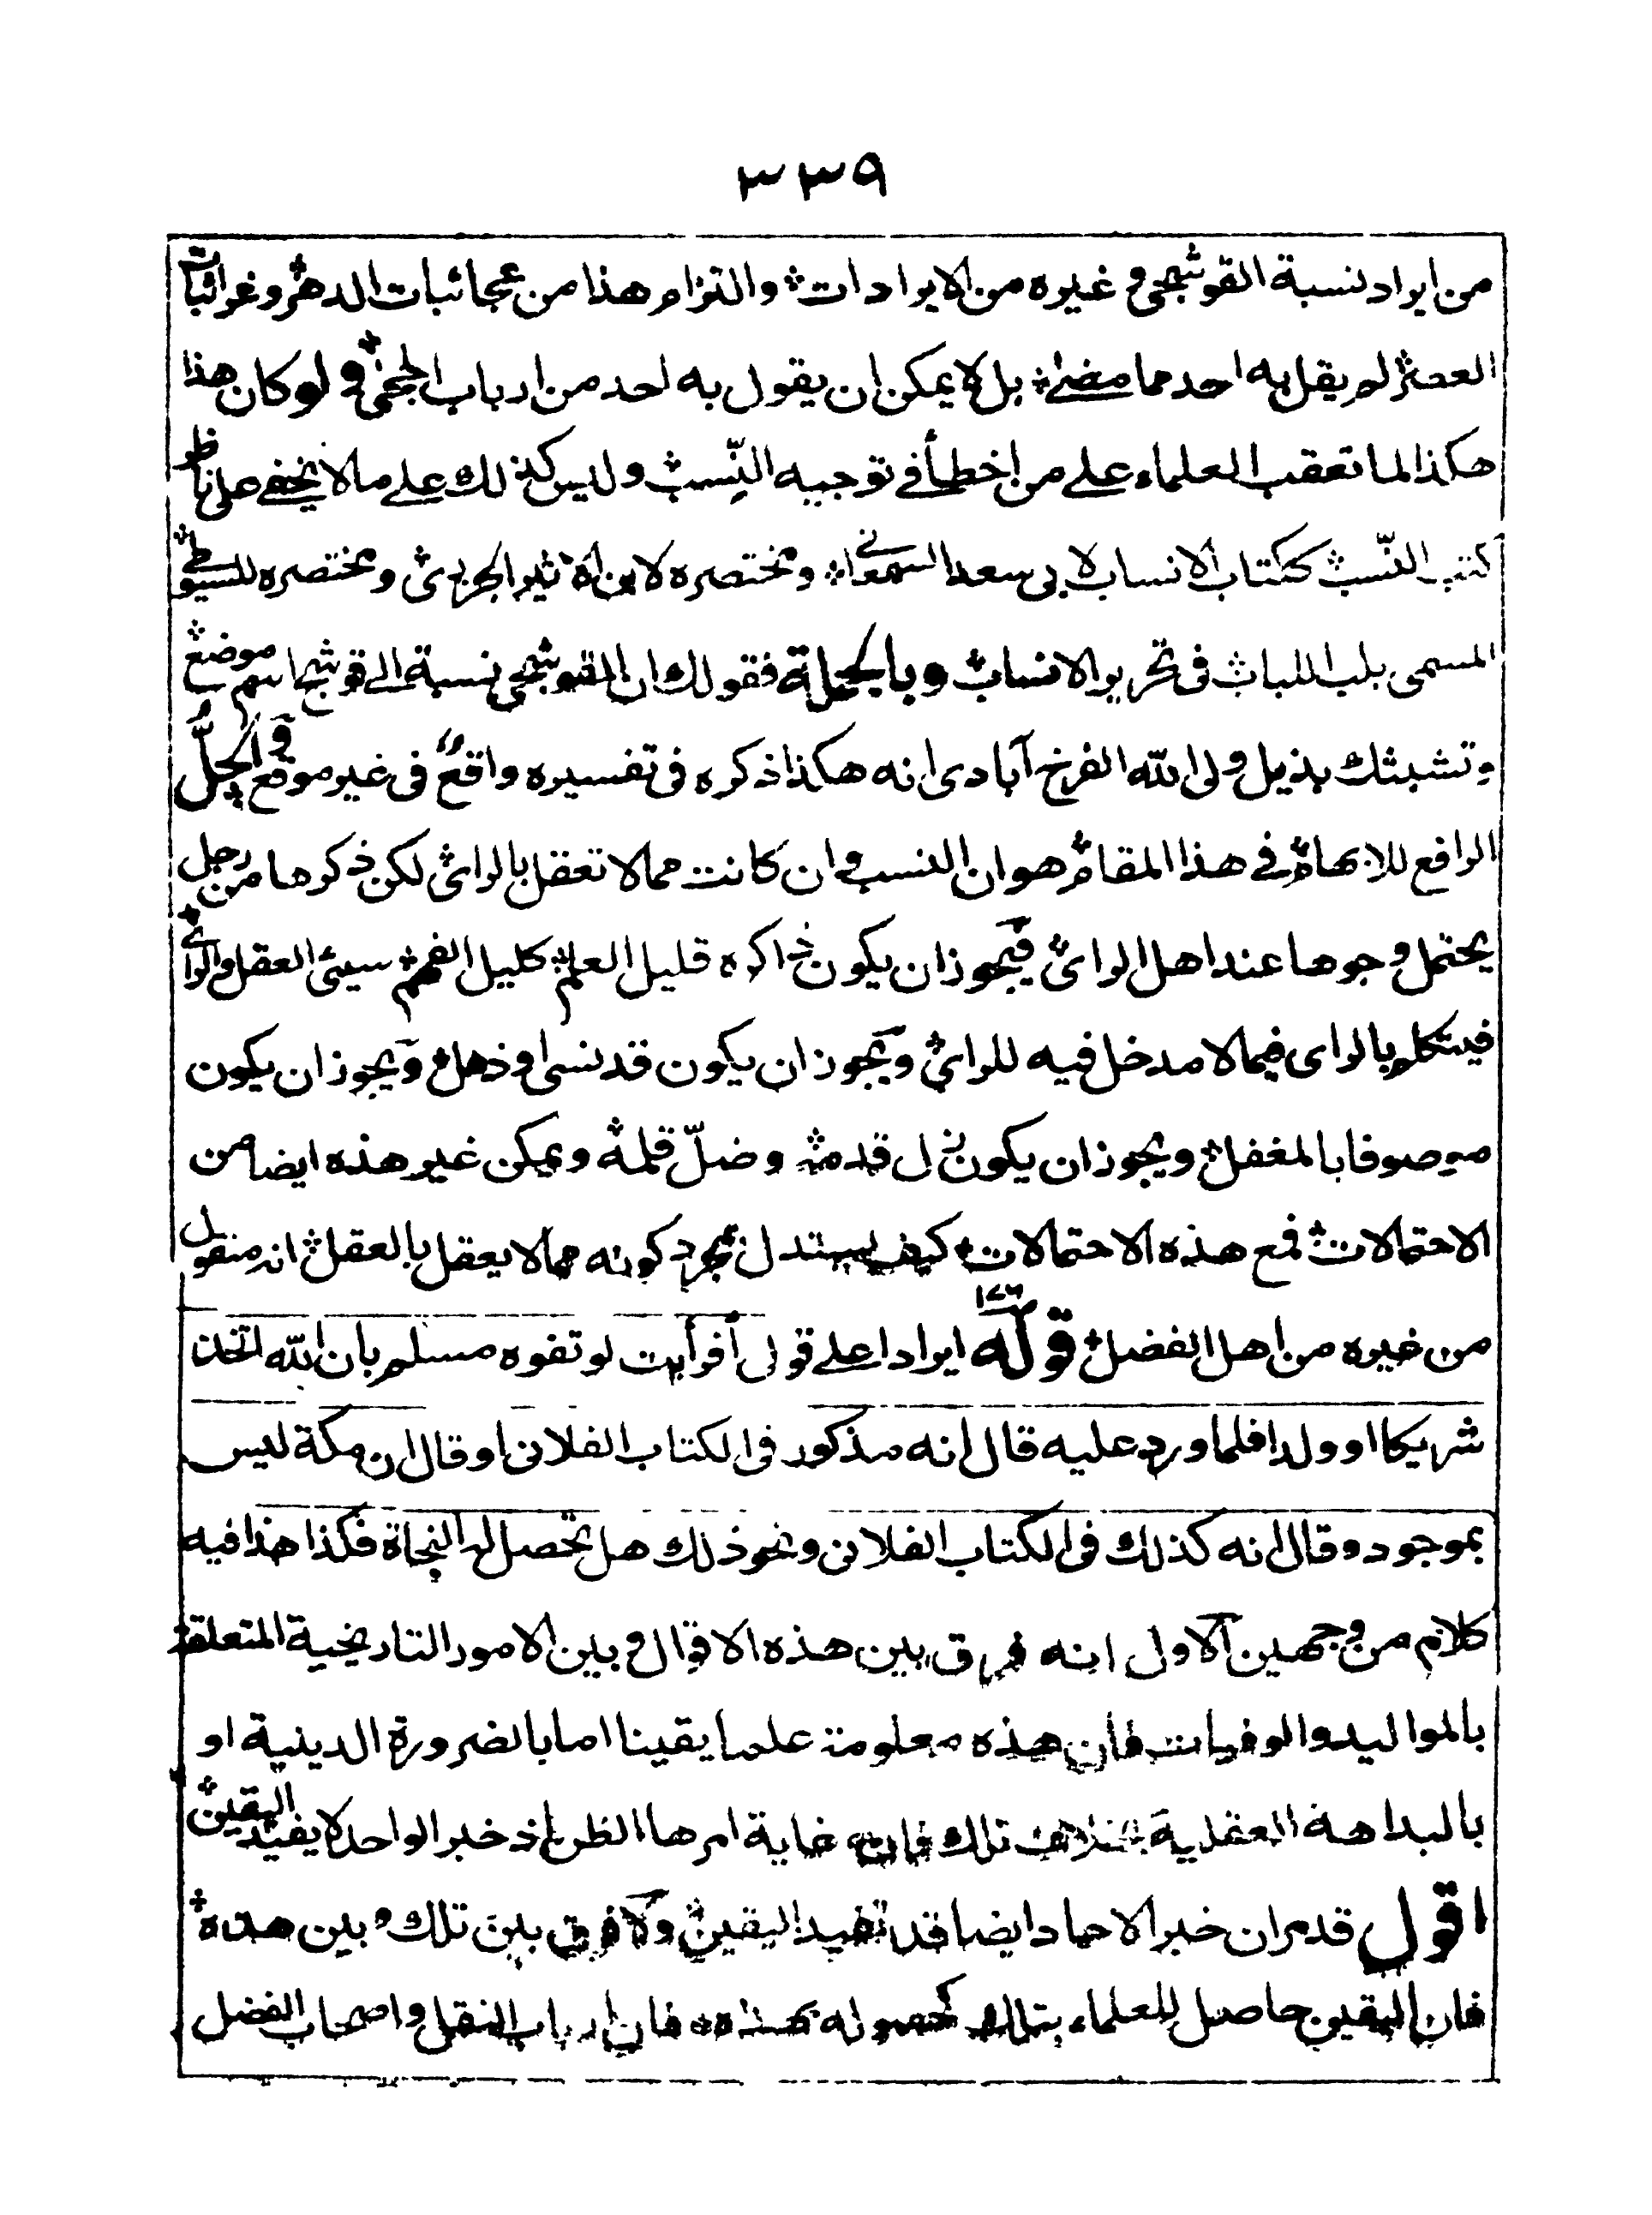 ٣٣٩
من ايراد نسبة القوشجى وغيره من الايرادات والتزام هذا من عجائبات الدهر وغرائبات
العصر لم يقل به احد مما مضى بل لا يمكن ان يقول به احد من ارباب الحجى ولو كان هذا
هكذا لما تعقب العلماء على من اخطأ فى توجيه النِّسب وليس كذلك على ما لا يخفى على ناظر
كتب النّسب ككتاب الانساب لابى سعد السمعانى ومختصره لابن الاثير الجزرى ومختصره للسيوطى
المسمى بلب اللباب فى تحرير الانساب وبالجملة فقولك ان القوشجى نسبة الى قوشج اسم موضع
وتشبثك بذيل ولى الله الفرخ آبادى انه هكذا ذكره فى تفسيره واقع فى غير موقع والحلُّ
الرافع للابهام فى هذا المقام هو ان النسب وان كانت مما لا تعقل بالراى لكن ذكرها من رجل
يحتمل وجوها عند اهل الراى فيجوز ان يكون ذاكره قليل العلم كليل الفهم سيئ العقل والراى
فيتكلم بالراى فيما لا مدخل فيه للراى ويجوز ان يكون قد نسى او ذهل ويجوز ان يكون
موصوفا بالمغفل ويجوز ان يكون زل قدمه وضلّ قلمه ويمكن غير هذه ايضا من
الاحتمالات فمع هذه الاحتمالات كيف يستدل بمجرد كونه مما لا يعقل بالعقل انه منقول
من غيره من اهل الفضل قوله ص١٧٦ ايرادا على قولى أفرأيت لو تفوه مسلم بان الله اتخذ
شريكا او ولدا فلما ورد عليه قال انه مذكور فى الكتاب الفلانى او قال ان مكة ليس
بموجود وقال انه كذلك فى الكتاب الفلانى ونحو ذلك هل تحصل له النجاة فكذا هذا فيه
كلام من وجهين الاول انه فرق بين هذه الاقوال وبين الامور التاريخية المتعلقة
بالمواليد والوفيات فان هذه معلومة علما يقينا اما بالضرورة الدينية او
بالبداهة العقلية بخلاف تلك فان غاية امرها الظن اذ خبر الواحد لا يفيد اليقين
اقول قد مر ان خبر الاحاد ايضا قد تفيد اليقين ولا فرق بين تلك وبين هذه
فان اليقين حاصل للعلماء بتلك كحصوله بهذه فان ارباب النقل واصحاب الفضل